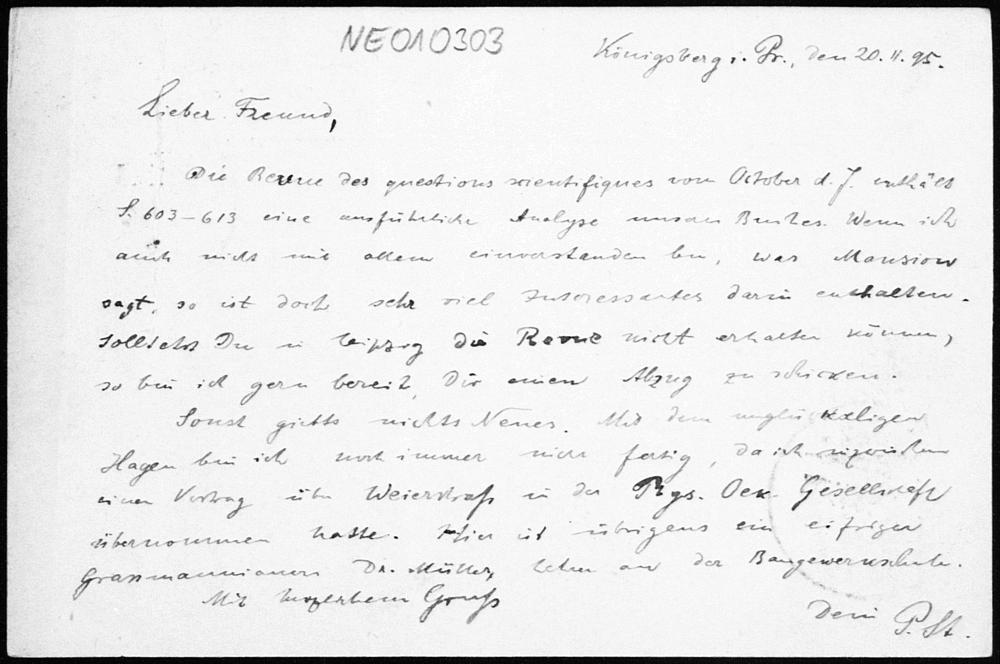 NE010303
Königsberg i. Pr., den 20. 11. 95.
Lieber Freund,
Die Revue des questions scientifiques vom October d. J. enthält
S. 603–613 eine ausführliche Analyse unseres Buches. Wenn ich
auch nicht mit allem einverstanden bin, was Mansion
sagt, so ist doch sehr viel Interessantes darin enthalten.
Solltest Du in Leipzig die Revue nicht erhalten können,
so bin ich gern bereit, Dir einen Abzug zu schicken.
Sonst giebts nichts Neues. Mit dem unglückseligen
Hagen bin ich noch immer nicht fertig, da ich inzwischen
einen Vortrag über Weierstraß in der Oek. Gesellschaft
übernommen hatte. Hier ist übrigens ein eifriger
Grassmannianer Dr. Müller, Lehrer an der Baugewerkschule.
Mit herzlichem Gruß
Dein P. St.